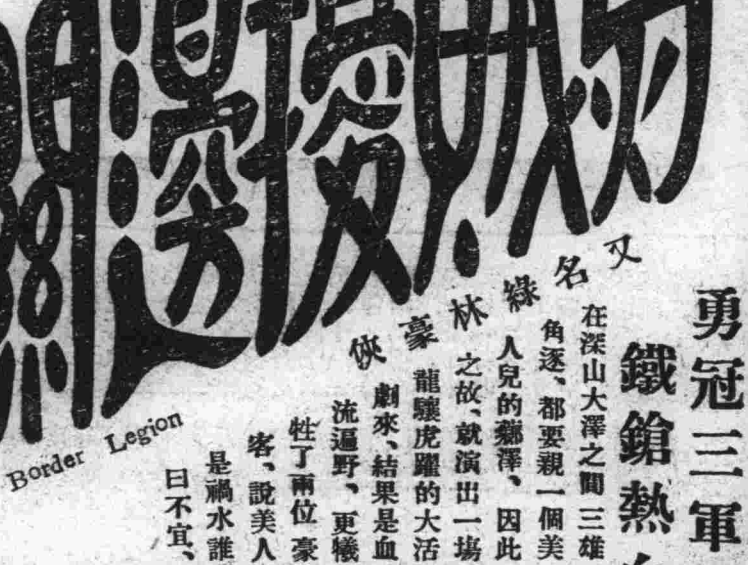 賊擾邊關
又名綠林豪俠
Border Legion
勇冠三軍
鐵鎗熱
在深山大澤之間三雄
角逐、都要親一個美
人兒的薌澤、因此
之故、就演出一塲
龍驤虎躍的大活
劇來、結果是血
流遍野、更犧
牲了兩位豪
客、說美人
是禍水誰
曰不宜、